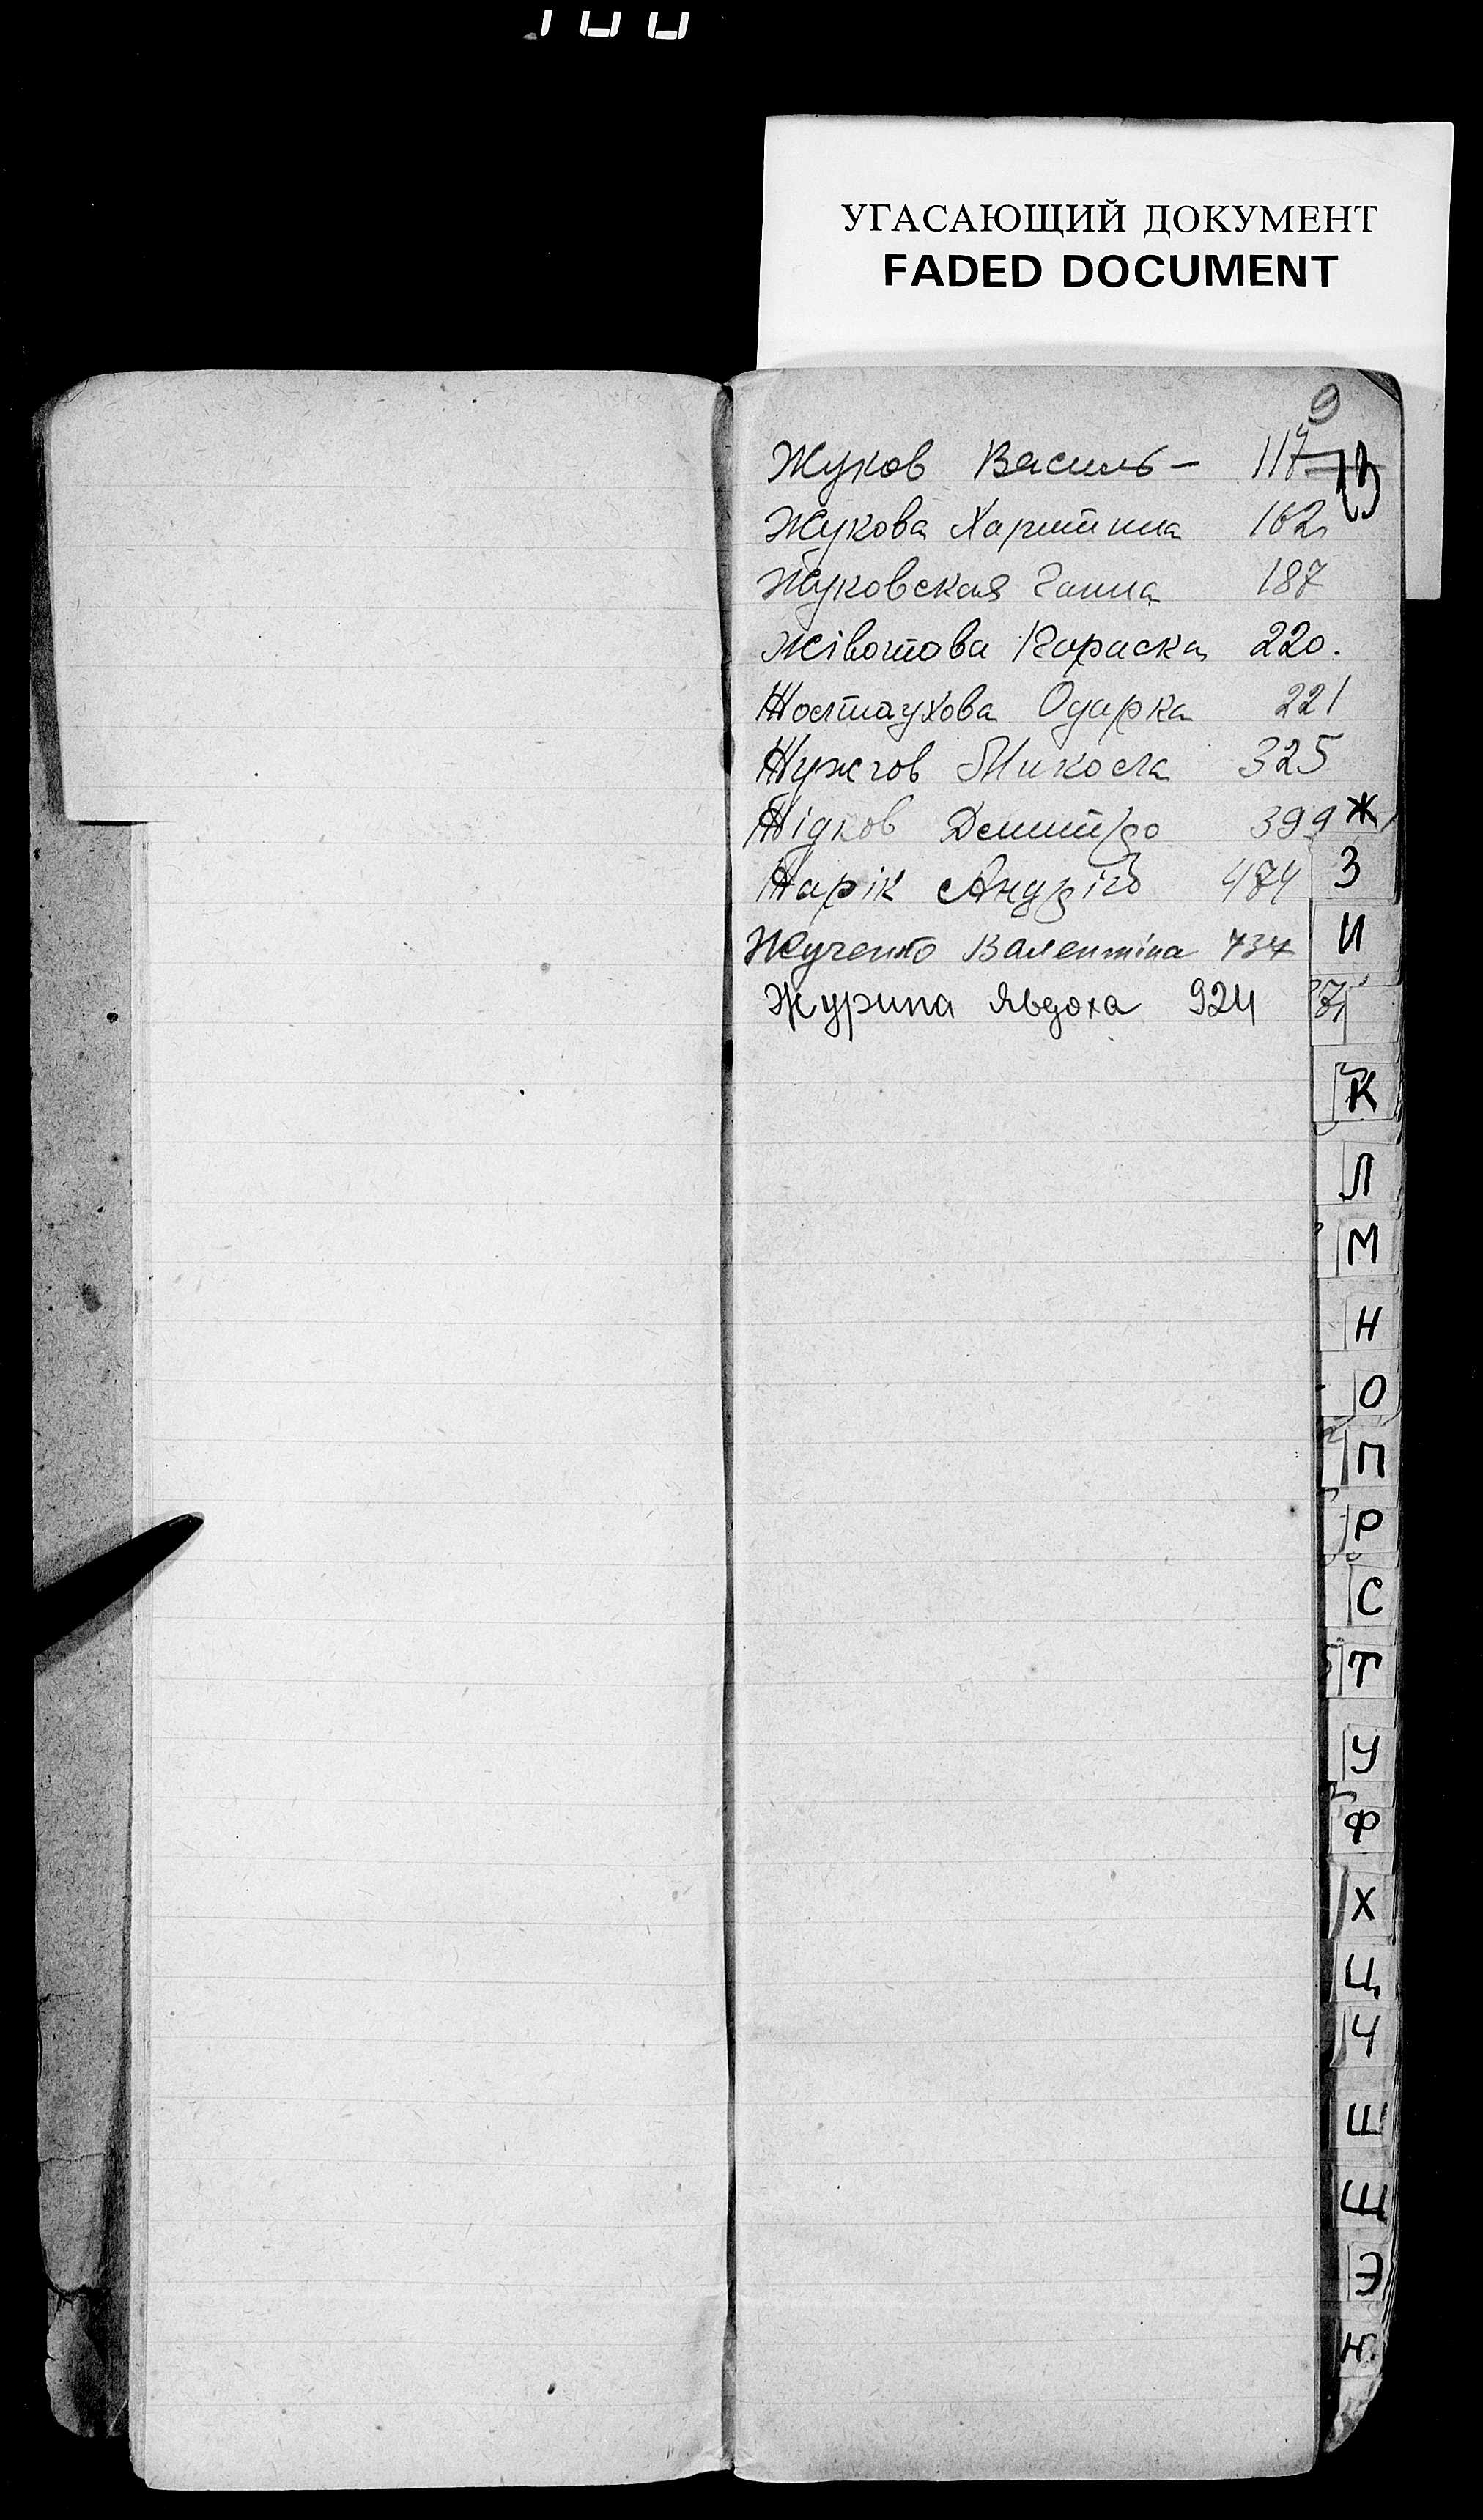 УГАСАЮЩИЙ ДОКУМЕНТ
FADED DOCUMENT
9
Жуков Василь — 117
Жукова Харитина 162
Жуковская Ганна 187
Жівотова Параска 220.
Жостаухова Одарка 221
Жужгов Микола 325
Жідков Демитро 399
Жарік Андрій 474
Жученко Валентіна 734
Журина Явдоха 924
Ж
З
И
К
Л
М
Н
О
П
Р
С
Т
У
Ф
Х
Ц
Ч
Ш
Щ
Э